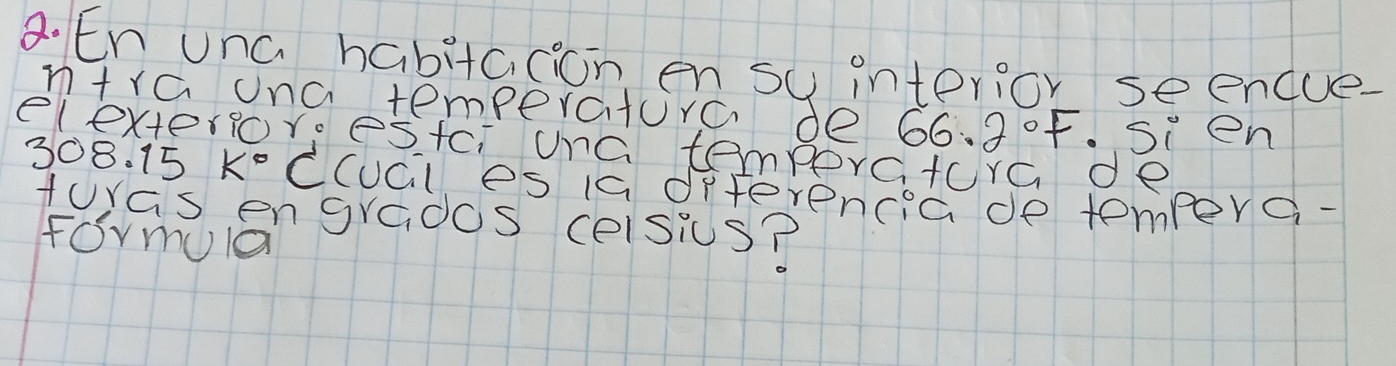 2. En una habitación en su interior se encue-
ntra una temperatura de 66.2°F. si en
el exterior está una temperatura de
308.15 K° ¿cual es la diferencia de tempera-
turas en grados celsius?
Fórmula